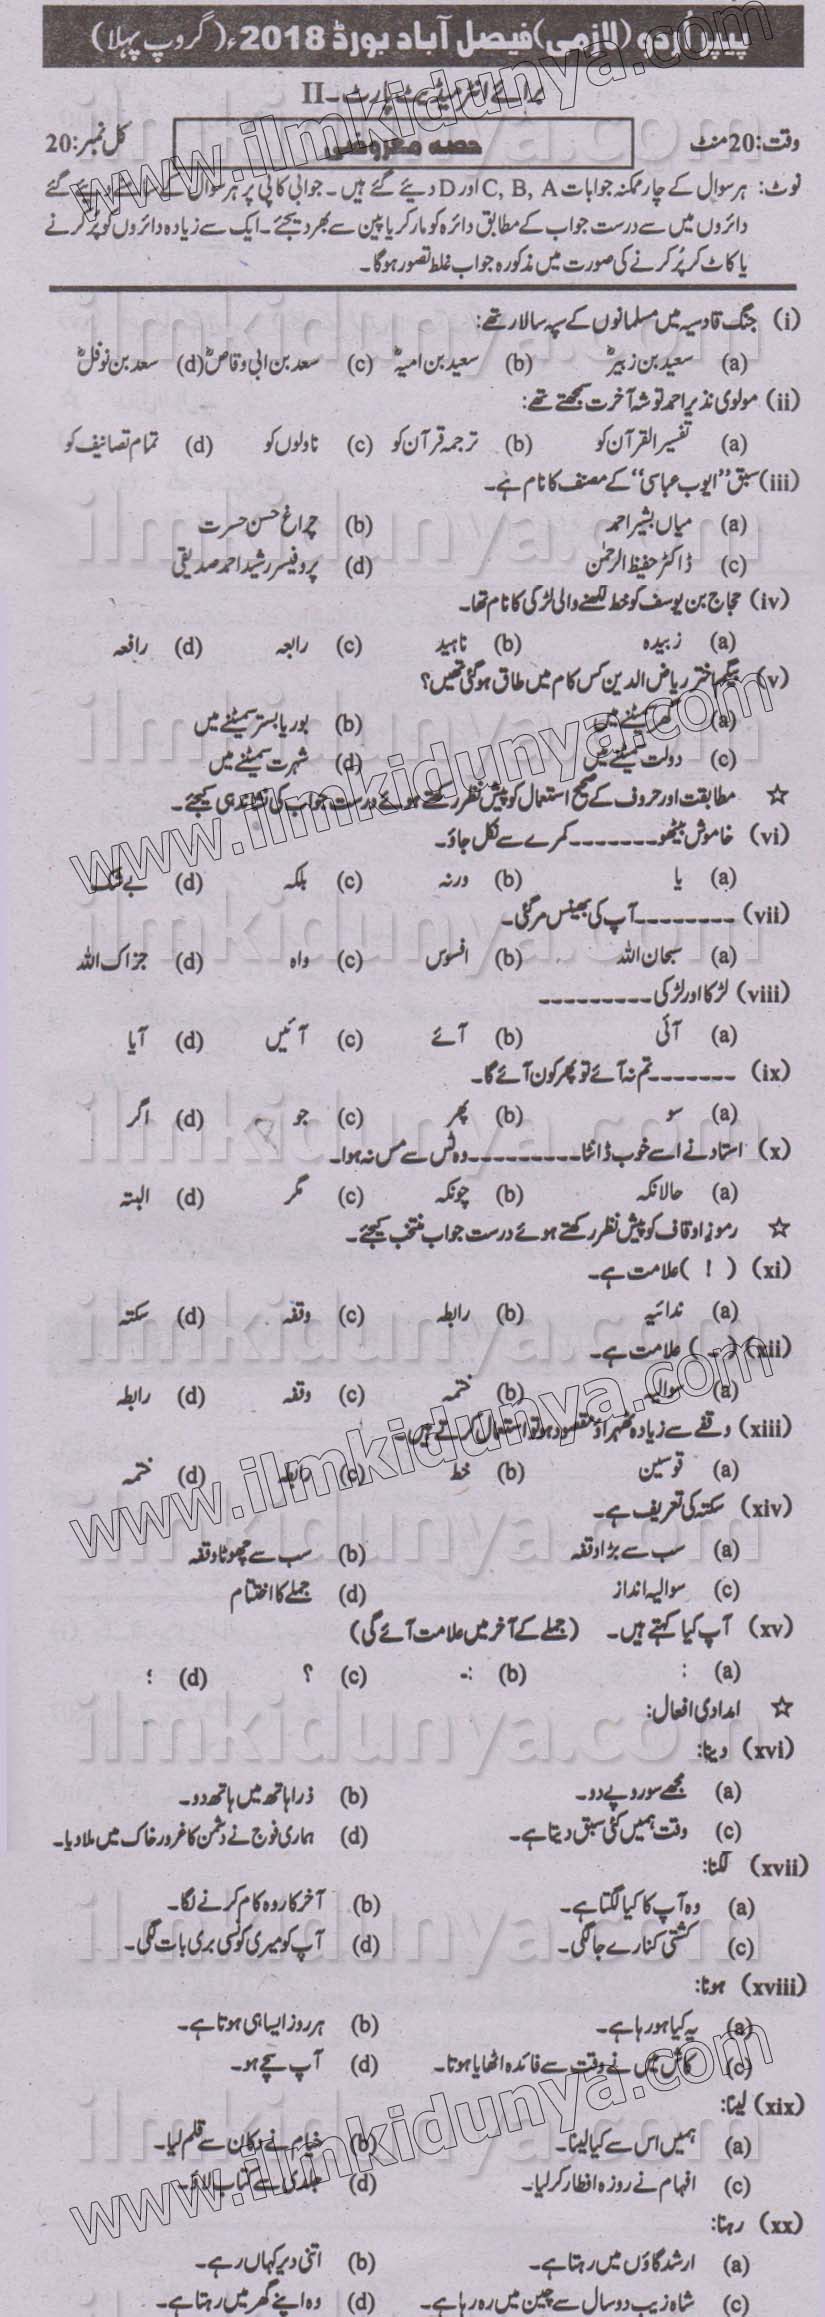 پیپر اُردو (لازمی) فیصل آباد بورڈ 2018ء (گروپ پہلا)
برائے انٹرمیڈیٹ پارٹ ۔ II
وقت: 20 منٹ حصہ معروضی کل نمبر: 20
نوٹ: ہر سوال کے چار ممکنہ جوابات C, B, A اور D دیئے گئے ہیں ۔ جوابی کاپی پر ہر سوال کے سامنے دیئے گئے
دائروں میں سے درست جواب کے مطابق دائرہ کو مارکر یا پین سے بھر دیجئے ۔ ایک سے زیادہ دائروں کو پُر کرنے
یا کاٹ کر پُر کرنے کی صورت میں مذکورہ جواب غلط تصور ہوگا ۔
(i) جنگ قادسیہ میں مسلمانوں کے سپہ سالار تھے:
(a) سعید بن زبیرؓ (b) سعید بن امیہؓ (c) سعد بن ابی وقاصؓ (d) سعد بن نوفلؓ
(ii) مولوی نذیر احمد توشہ آخرت سمجھتے تھے:
(a) تفسیر القرآن کو (b) ترجمہ قرآن کو (c) ناولوں کو (d) تمام تصانیف کو
(iii) سبق ”ایوب عباسی“ کے مصنف کا نام ہے ۔
(a) میاں بشیر احمد (b) چراغ حسن حسرت
(c) ڈاکٹر حفیظ الرحمٰن (d) پروفیسر رشید احمد صدیقی
(iv) حجاج بن یوسف کو خط لکھنے والی لڑکی کا نام تھا ۔
(a) زبیدہ (b) ناہید (c) رابعہ (d) رافعہ
(v) بیگم اختر ریاض الدین کس کام میں طاق ہو گئی تھیں؟
(a) گھر سمیٹنے میں (b) بوریا بستر سمیٹنے میں
(c) دولت سمیٹنے میں (d) شہرت سمیٹنے میں
☆ مطابقت اور حروف کے صحیح استعمال کو پیش نظر رکھتے ہوئے درست جواب کی نشاندہی کیجئے ۔
(vi) خاموش بیٹھو ۔۔۔۔۔۔۔ کمرے سے نکل جاؤ ۔
(a) یا (b) ورنہ (c) بلکہ (d) بے شک
(vii) ۔۔۔۔۔۔۔۔ آپ کی بھینس مر گئی ۔
(a) سبحان اللہ (b) افسوس (c) واہ (d) جزاک اللہ
(viii) لڑکا اور لڑکی ۔۔۔۔۔۔۔۔۔
(a) آئی (b) آئے (c) آئیں (d) آیا
(ix) ۔۔۔۔۔۔۔ تم نہ آئے تو پھر کون آئے گا ۔
(a) سو (b) پھر (c) جو (d) اگر
(x) استاد نے اسے خوب ڈانٹا ۔۔۔۔۔۔۔۔۔ وہ ٹس سے مس نہ ہوا ۔
(a) حالانکہ (b) چونکہ (c) مگر (d) البتہ
☆ رموز اوقاف کو پیش نظر رکھتے ہوئے درست جواب منتخب کیجئے ۔
(xi) ( ! ) علامت ہے ۔
(a) ندائیہ (b) رابطہ (c) وقفہ (d) سکتہ
(xii) ( ۔ ) علامت ہے ۔
(a) سوالیہ (b) ختمہ (c) وقفہ (d) رابطہ
(xiii) وقفے سے زیادہ ٹھہراؤ مقصود ہو تو استعمال کرتے ہیں ۔
(a) قوسین (b) خط (c) رابطہ (d) ختمہ
(xiv) سکتہ کی تعریف ہے ۔
(a) سب سے بڑا وقفہ (b) سب سے چھوٹا وقفہ
(c) سوالیہ انداز (d) جملے کا اختتام
(xv) آپ کیا کہتے ہیں ۔ (جملے کے آخر میں علامت آئے گی)
(a) : (b) :۔ (c) ؟ (d) ؛
☆ امدادی افعال:
(xvi) دینا:
(a) مجھے سو روپے دو ۔ (b) ذرا ہاتھ میں ہاتھ دو ۔
(c) وقت ہمیں کئی سبق دیتا ہے ۔ (d) ہماری فوج نے دشمن کا غرور خاک میں ملا دیا ۔
(xvii) لگنا:
(a) وہ آپ کا کیا لگتا ہے ۔ (b) آخر کار وہ کام کرنے لگا ۔
(c) کشتی کنارے جا لگی ۔ (d) آپ کو میری کونسی بری بات لگی ۔
(xviii) ہونا:
(a) یہ کیا ہو رہا ہے ۔ (b) ہر روز ایسا ہی ہوتا ہے ۔
(c) کاش میں نے وقت سے فائدہ اٹھایا ہوتا ۔ (d) آپ سچے ہو ۔
(xix) لینا:
(a) ہمیں اس سے کیا لینا ۔ (b) خیام نے دکان سے قلم لیا ۔
(c) افہام نے روزہ افطار کر لیا ۔ (d) جلدی سے کتاب لاؤ ۔
(xx) رہنا:
(a) ارشد گاؤں میں رہتا ہے ۔ (b) اتنی دیر کہاں رہے ۔
(c) شاہ زیب دو سال سے چین میں رہ رہا ہے ۔ (d) وہ اپنے گھر میں رہتا ہے ۔
www.ilmkidunya.com
ilmkidunya.com